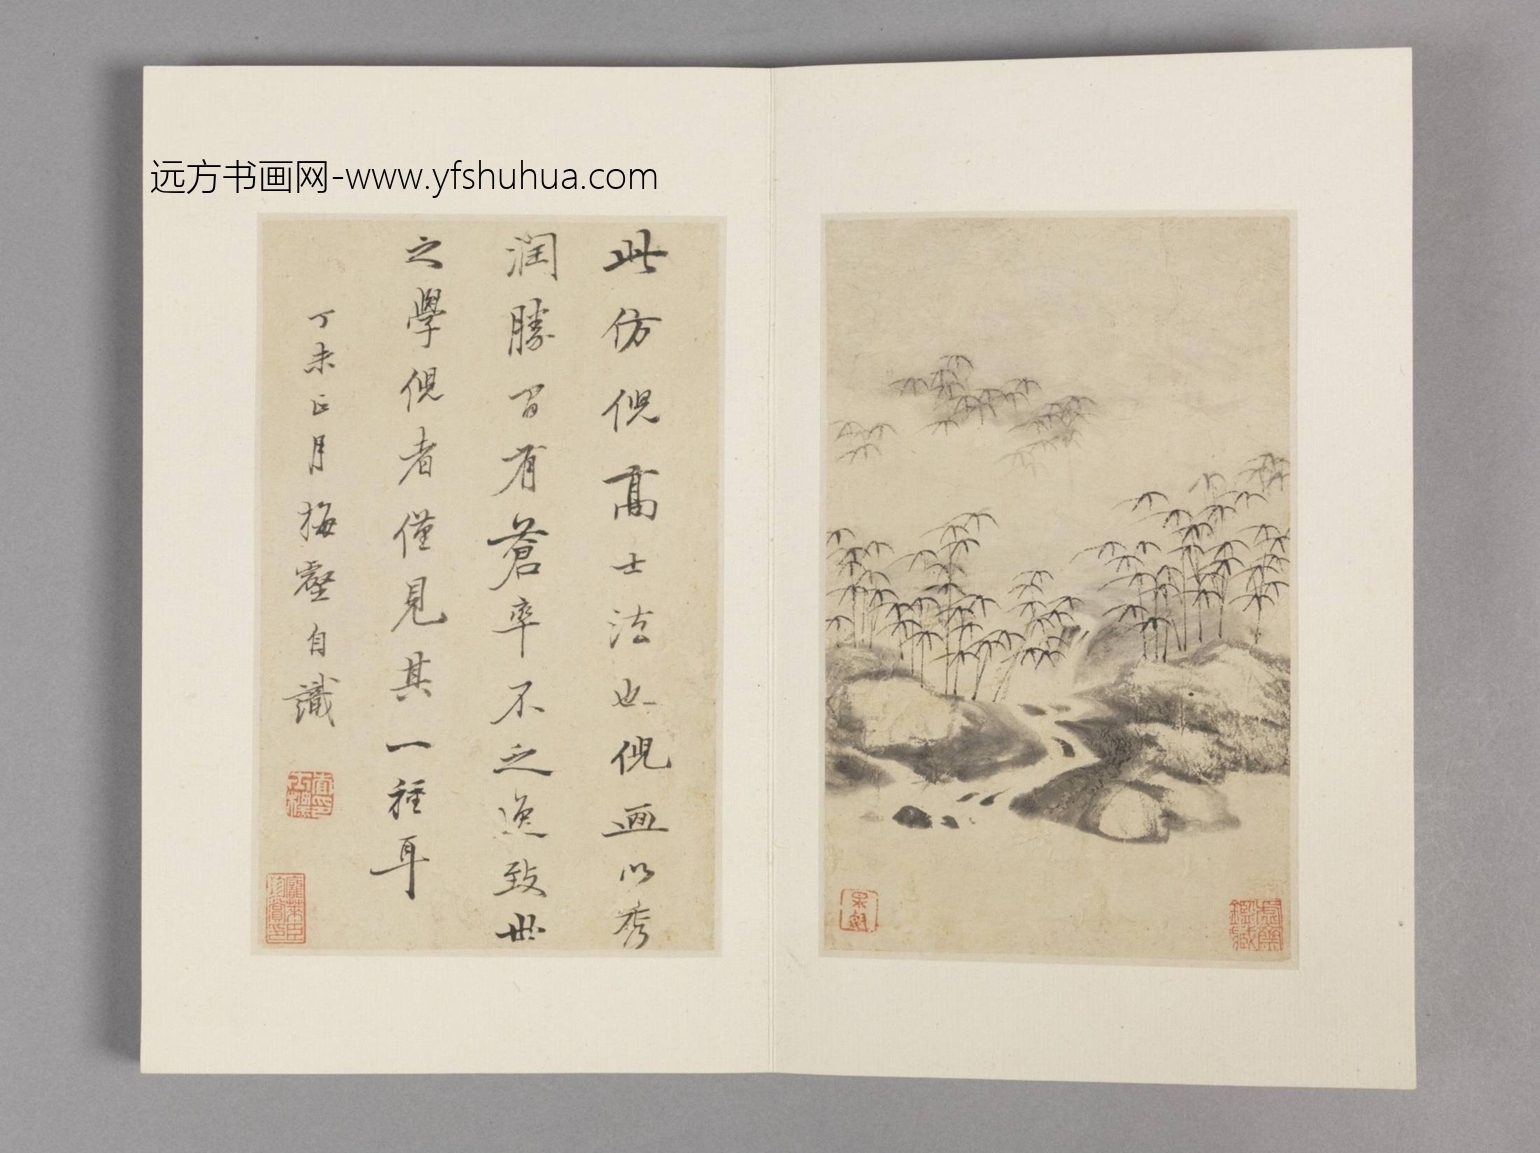 远方书画网-www.yfshuhua.com
此仿倪高士法也倪画以秀
润勝間有蒼率不之逸致世
之學倪者僅見其一種耳
丁未正月梅壑自識